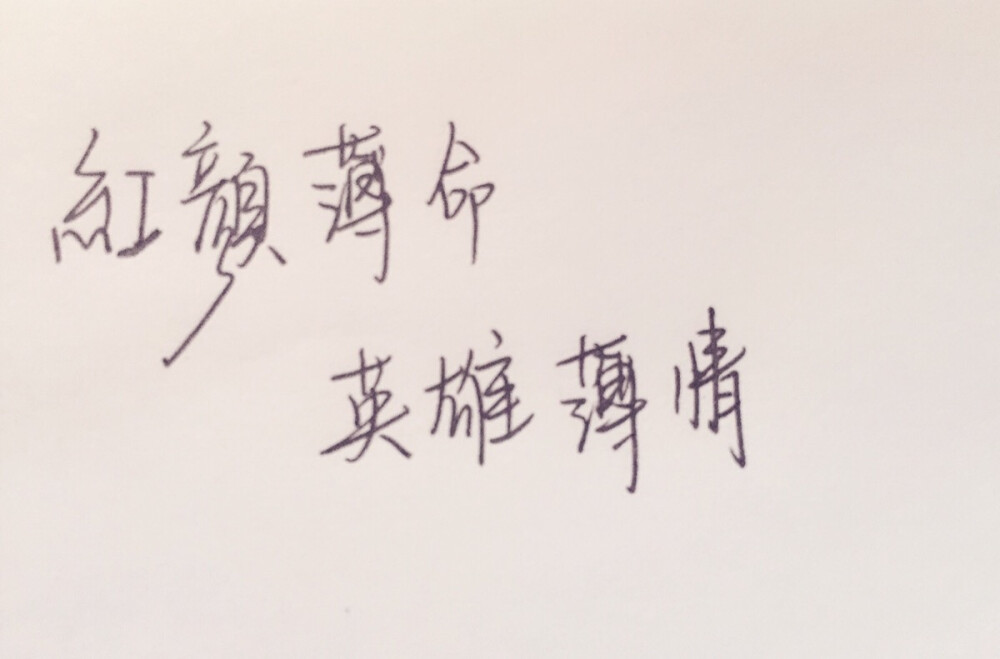 紅顏薄命
英雄薄情